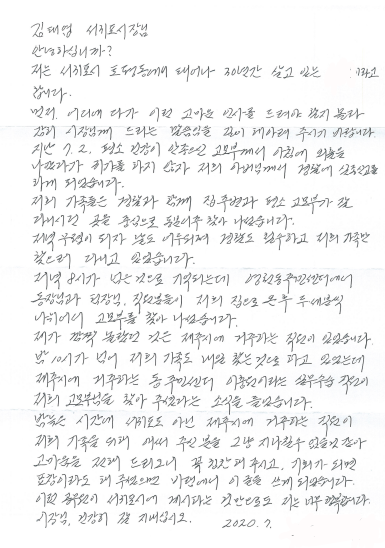 김태엽 서귀포시장님
안녕하십니까?
저는 서귀포시 토평동에 태어나 30년간 살고 있는 이라고
합니다.
먼저 어디에 다가 이런 고마운 인사를 드려야 할지 몰라
감히 시장님께 드리는 말씀임을 깊이 헤아려 주시기 바랍니다.
지난 7.2. 평소 건강이 안좋으신 고모부께서 아침에 외출을
나갔다가 귀가를 하지 않자 저희 아버님께서 경찰에 실종신고를
하게 되었습니다.
저희 가족들은 경찰과 함께 집주변과 평소 고모부가 잘
다니시던 곳을 중심으로 동분서주 찾아 나섰습니다.
저녁 무렵이 되자 날도 어두워져 경찰도 철수하고 저희 가족만
찾으러 다니고 있었습니다.
저녁 8시가 넘은 것으로 기억되는데 영천동주민센터에서
동장님과 팀장님, 직원분들이 저희 집으로 온 후 두세명씩
나뉘어서 고모부를 찾아 나섰습니다.
제가 깜짝 놀랐던 것은 제주시에 거주하는 직원이 있었습니다.
밤 10시가 넘어 저희 가족도 내일 찾는 것으로 하고 있었는데
제주시에 거주하는 동주민센터 직원이
저희 고모부님을 찾아 주셨다는 소식을 들었습니다.
밤늦은 시간에 서귀포도 아닌 제주시에 거주하는 직원이
저희 가족을 위해 애써 주신 분을 그냥 지나칠수 없을것 같아
고마움을 전해 드리오니 꼭 칭찬해 주시고, 기회가 되면
표창이라도 해 주셨으면 바램에서 이 글을 쓰게 되었습니다.
이런 공무원이 서귀포시에 계시다는 것만으로도 저는 너무 행복합니다.
시장님, 건강히 잘 지내십시오. 2020. 7.